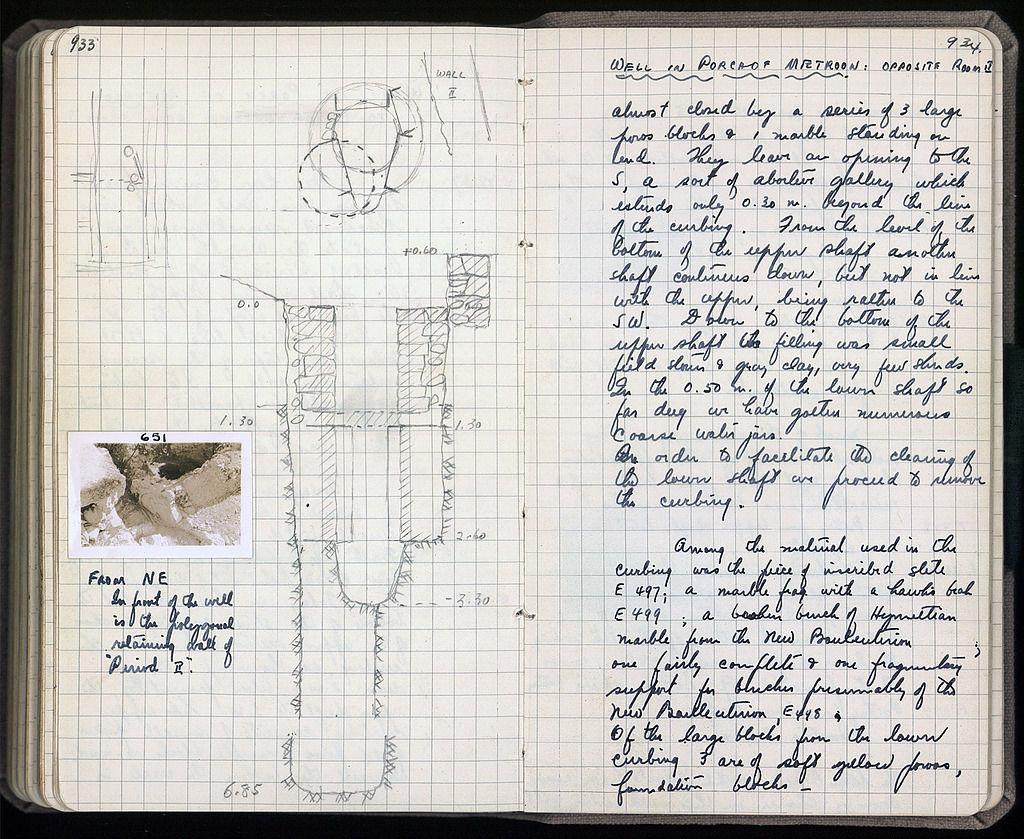 933
WALL
II
+0.60
0.0
1.30
1.30
2.60
3.30
6.85
651
FROM NE
In front of the well
is the polygonal
retaining wall of
"Period II".
934.
WELL IN PORCH OF METROON: OPPOSITE ROOM II
almost closed by a series of 3 large
poros blocks & 1 marble standing on
end. They leave an opening to the
S, a sort of abortive gallery which
extends only 0.30 m. beyond the line
of the curbing. From the level of the
bottom of the upper shaft another
shaft continues down, but not in line
with the upper, being rather to the
SW. Down to the bottom of the
upper shaft the filling was small
field stones & gray clay, very few sherds.
In the 0.50 m. of the lower shaft so
far dug we have gotten numerous
coarse water jars.
In order to facilitate the clearing of
the lower shaft we proceed to remove
the curbing.
Among the material used in the
curbing was the piece of inscribed stele
E 497; a marble frag. with a hawk's beak
E 499; a broken bench of Hymettian
marble from the New Bouleuterion;
one fairly complete & one fragmentary
support for benches presumably of the
New Bouleuterion, E 498.
Of the large blocks from the lower
curbing 3 are of soft yellow poros,
foundation blocks –